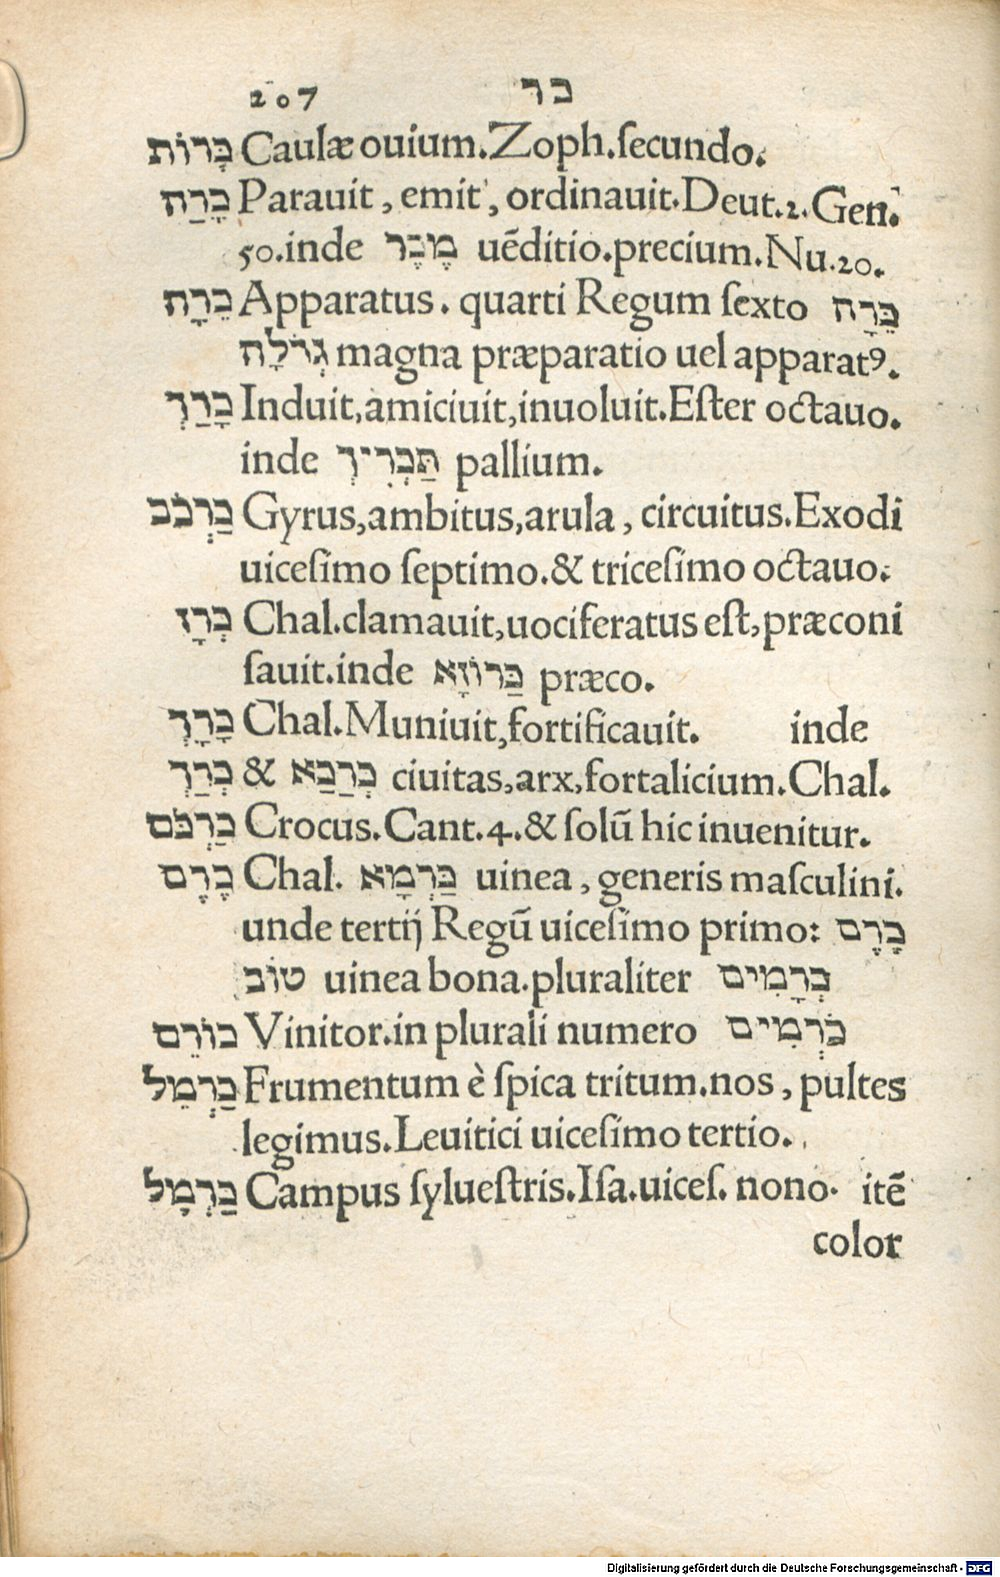 207 כר
כָּרוֹת Caulæ ouium. Zoph. ſecundo.
כָּרַה Parauit, emit, ordinauit. Deut. 2. Gen.
50. inde מֶכֶר uẽditio. precium. Nu. 20.
כֵּרָה Apparatus. quarti Regum ſexto כֵּרָה
גְדֹלָה magna præparatio uel apparatꝰ.
כָּרַךְ Induit, amiciuit, inuoluit. Eſter octauo.
inde תַּכְרִיךְ pallium.
כַּרְכֹּב Gyrus, ambitus, arula, circuitus. Exodi
uiceſimo ſeptimo. & triceſimo octauo.
כְּרָז Chal. clamauit, uociferatus eſt, præconi
ſauit. inde כַּרוֹזָא præco.
כָּרָךְ Chal. Muniuit, fortificauit. inde
כְּרַךְ & כְּרַכַּא ciuitas, arx, fortalicium. Chal.
כַּרְכֹּם Crocus. Cant. 4. & ſolũ hic inuenitur.
כֶּרֶם Chal. כַּרְמָא uinea, generis maſculini.
unde tertij Regũ uiceſimo primo: כָּרֶם
טוֹב uinea bona. pluraliter כְּרָמִים
כוֹרֵם Vinitor. in plurali numero כֹּרְמִים
כַּרְמֵל Frumentum è ſpica tritum. nos, pultes
legimus. Leuitici uiceſimo tertio.
כַּרְמֶל Campus ſylueſtris. Iſa. uiceſ. nono. itẽ
color
Digitalisierung gefördert durch die Deutsche Forschungsgemeinschaft - DFG